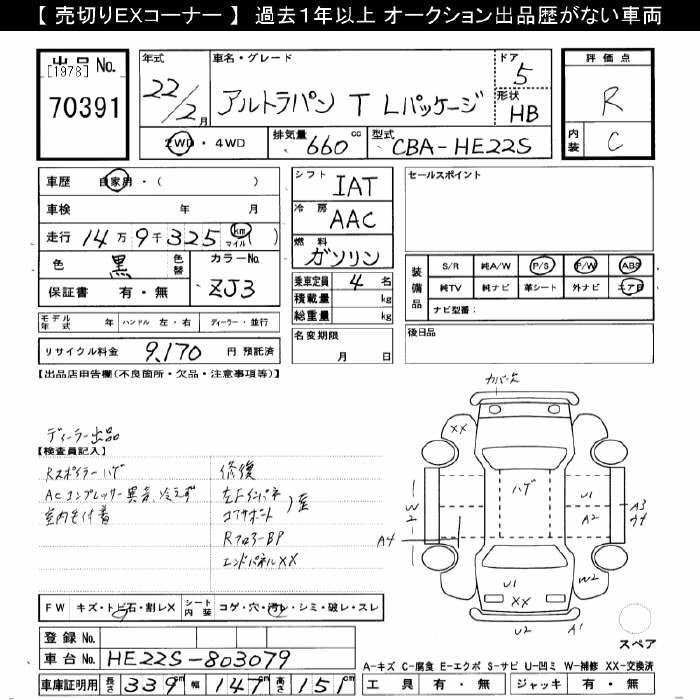 【 売切りEXコーナー 】 過去1年以上 オークション出品歴がない車両
出品 No.
[1978]
70391
年式
22/2月
車名・グレード
アルトラパン T Lパッケージ
ドア
5
形状
HB
2WD ・ 4WD
排気量 660 cc
型式 CBA-HE22S
評価点
R
内装 C
車歴 自家用・( )
車検 年 月
走行 14万9千325 km マイル ( )
色 黒 色替
カラーNo. ZJ3
保証書 有・無
シフト IAT
冷房 AAC
燃料 ガソリン
乗車定員 4 名
積載量 kg
総重量 kg
セールスポイント
装備品
S/R 純A/W P/S P/W ABS
純TV 純ナビ 革シート 外ナビ エアB
ナビ型番:
モデル年式 年 ハンドル 左・右 ディーラー・並行
リサイクル料金 9,170 円 預託済
名変期限
月 日
後日品
【出品店申告欄(不良箇所・欠品・注意事項等)】
ディーラー出品
【検査員記入】
Rスポイラーハゲ
ACコンプレッサー異音、冷えず
修復
左Fインパネ
コアサポート
Rフロ3-BP
エンドパネルXX
カバー欠
XX
ハゲ
U1
A2
A3
A4
W2
U1
XX
W2
U2
A1
スペア
FW キズ・トビ石・割レX
シート内装 コゲ・穴・汚レ・シミ・破レ・スレ
登録 No.
車台 No. HE22S-803079
車庫証明用 長さ 339 cm 幅 147 cm 高さ 151 cm
A-キズ C-腐食 E-エクボ S-サビ U-凹ミ W-補修 XX-交換済
工具 有・無 ジャッキ 有・無